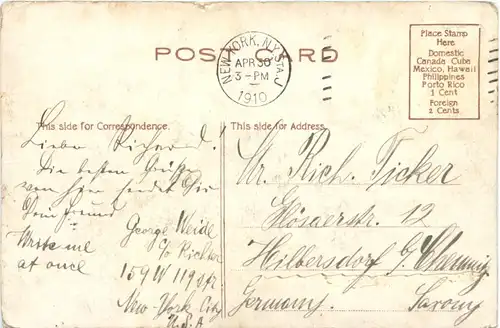 POST CARD
NEW YORK, N.Y. STA. J
APR 30
3-PM
1910
Place Stamp
Here
Domestic
Canada Cuba
Mexico, Hawaii
Philippines
Porto Rico
1 Cent
Foreign
2 Cents
This side for Correspondence.
Lieber Richard!
Die besten Grüße
von hier sendet Dir
Dein Freund
George Weide
c/o Richter
159 W 119 Str
New York City
U.S.A
Write me
at once
This side for Address.
Mr. Rich. Ticker
Hilbersdorf b/ Chemnitz
Germany. Saxony